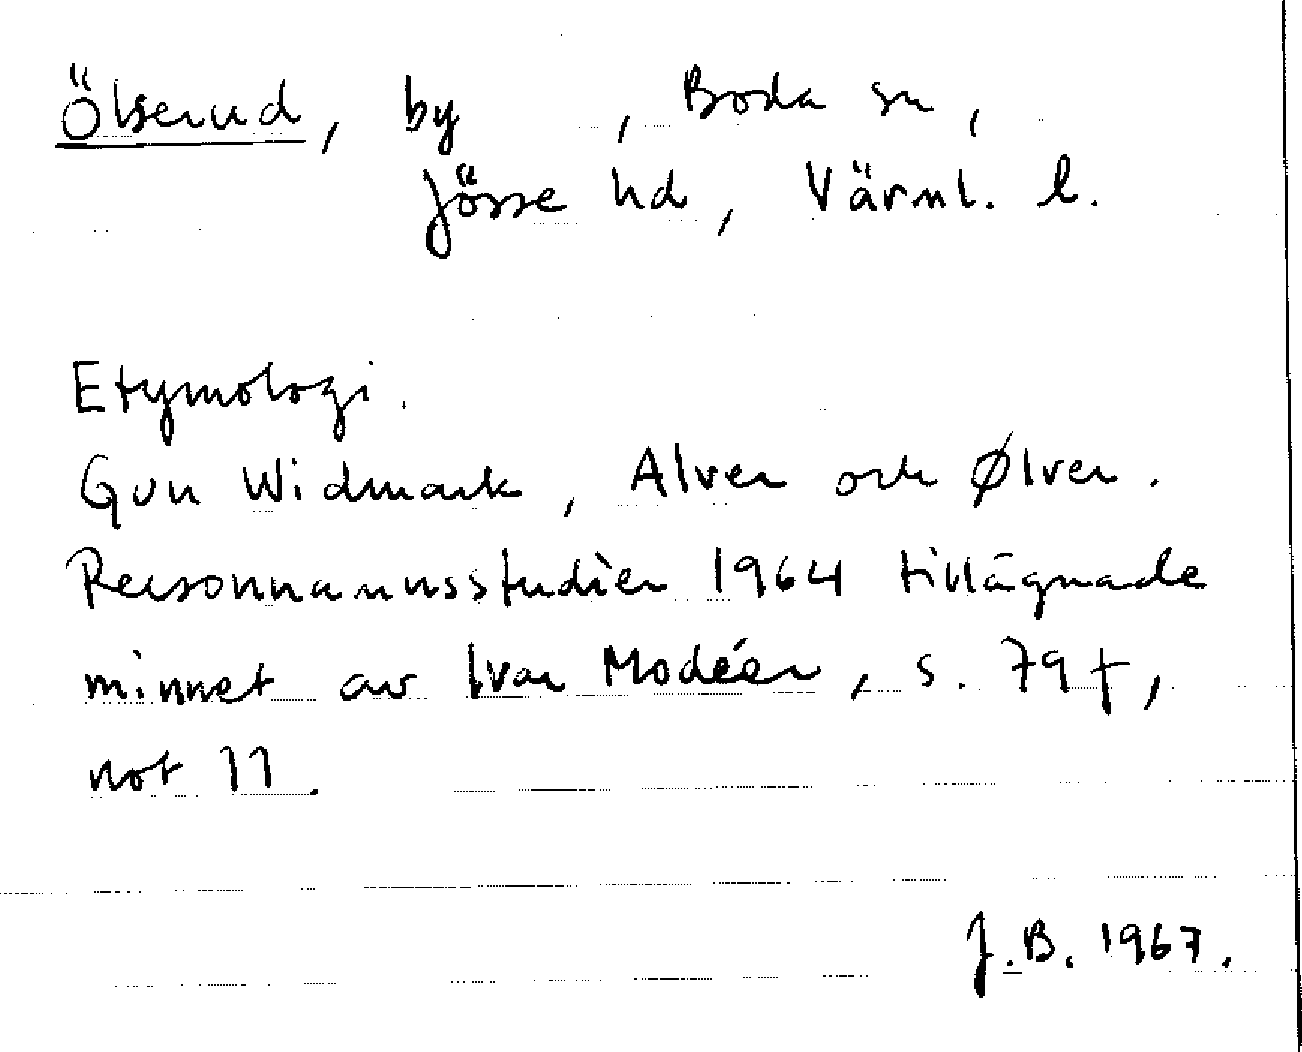 Ölserud, by , Boda sn,
Jösse hd, Värml. l.
Etymologi.
Gun Widmark, Alver och Ølver.
Personnamnsstudier 1964 tillägnade
minnet av Ivar Modéer, s. 79 f,
not 11.
J.B. 1967.